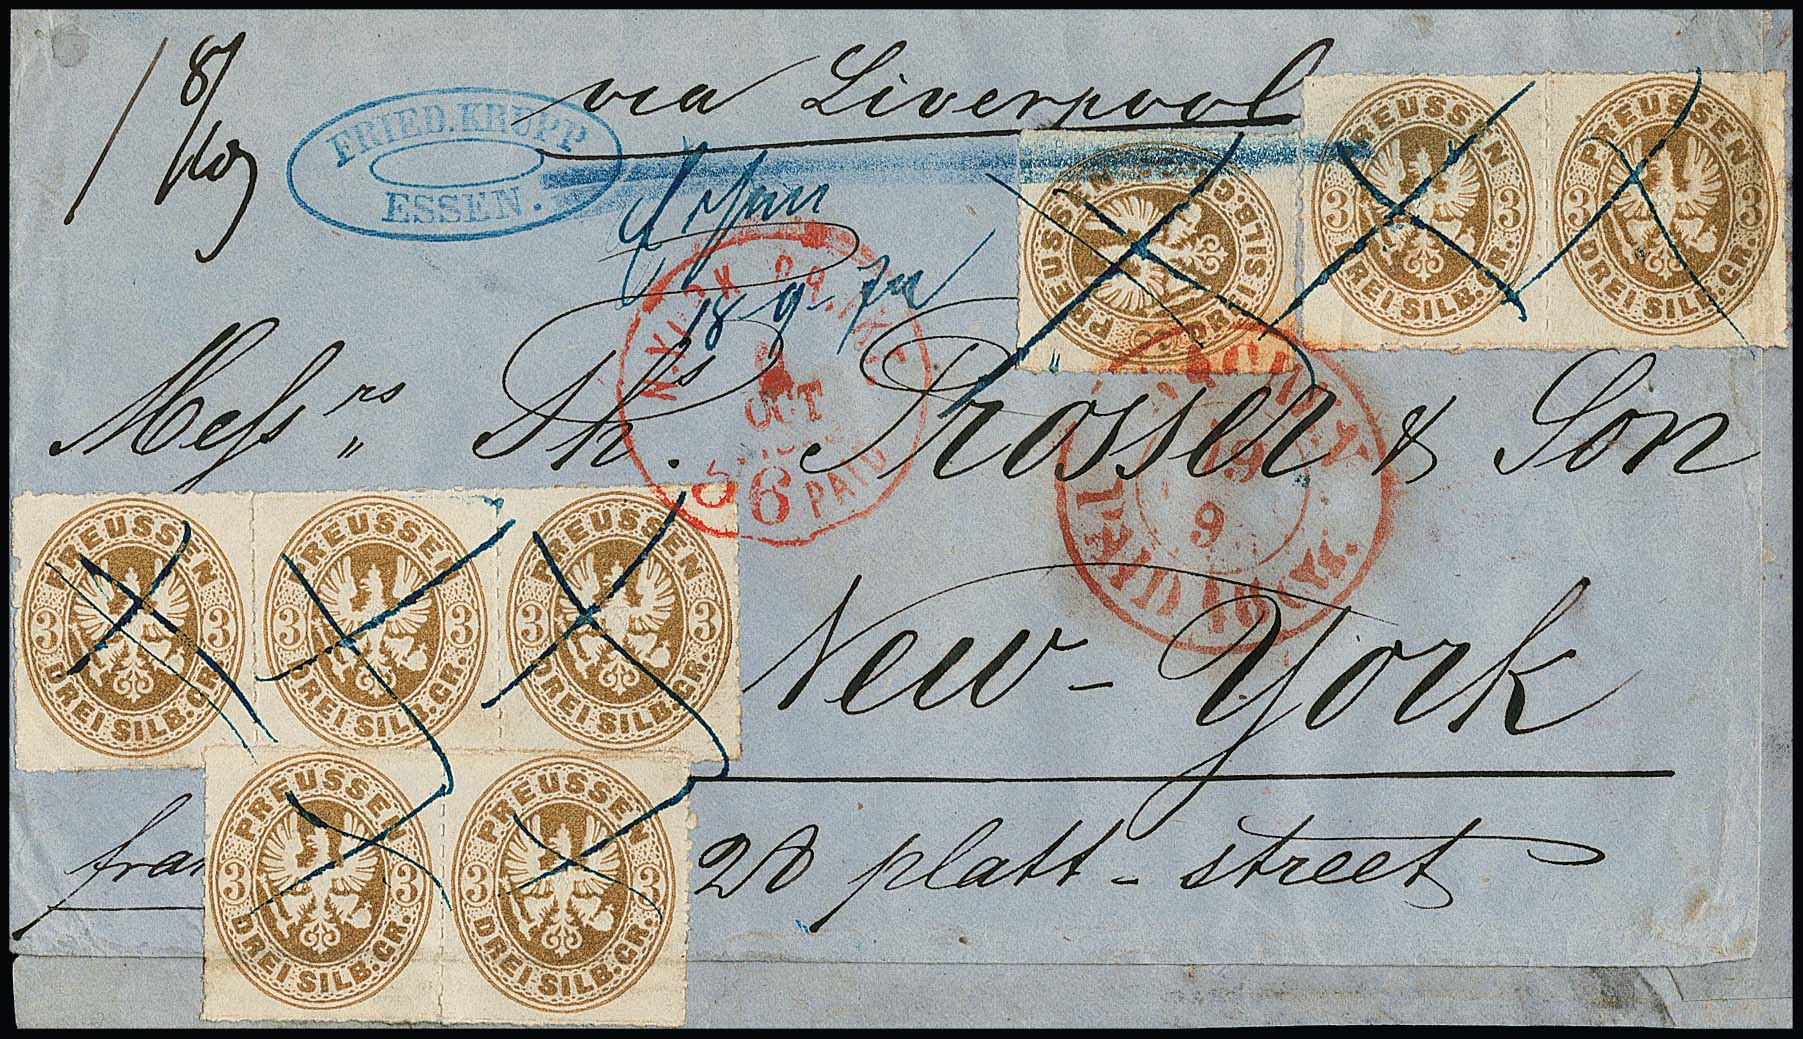 via Liverpool
FRIED. KRUPP
ESSEN.
PREUSSEN
3 3
DREI SILB. GR.
PREUSSEN
3 3
DREI SILB. GR.
PREUSSEN
3
DREI SILB. GR.
Essen
18 9
OCT
6 PAID
Messrs Th. Prosser & Son
AACHEN
19
9
PAID
New-York
PREUSSEN
3 3
DREI SILB. GR.
PREUSSEN
3 3
DREI SILB. GR.
PREUSSEN
3 3
DREI SILB. GR.
PREUSSEN
3 3
DREI SILB. GR.
PREUSSEN
3 3
DREI SILB. GR.
28 platt-street